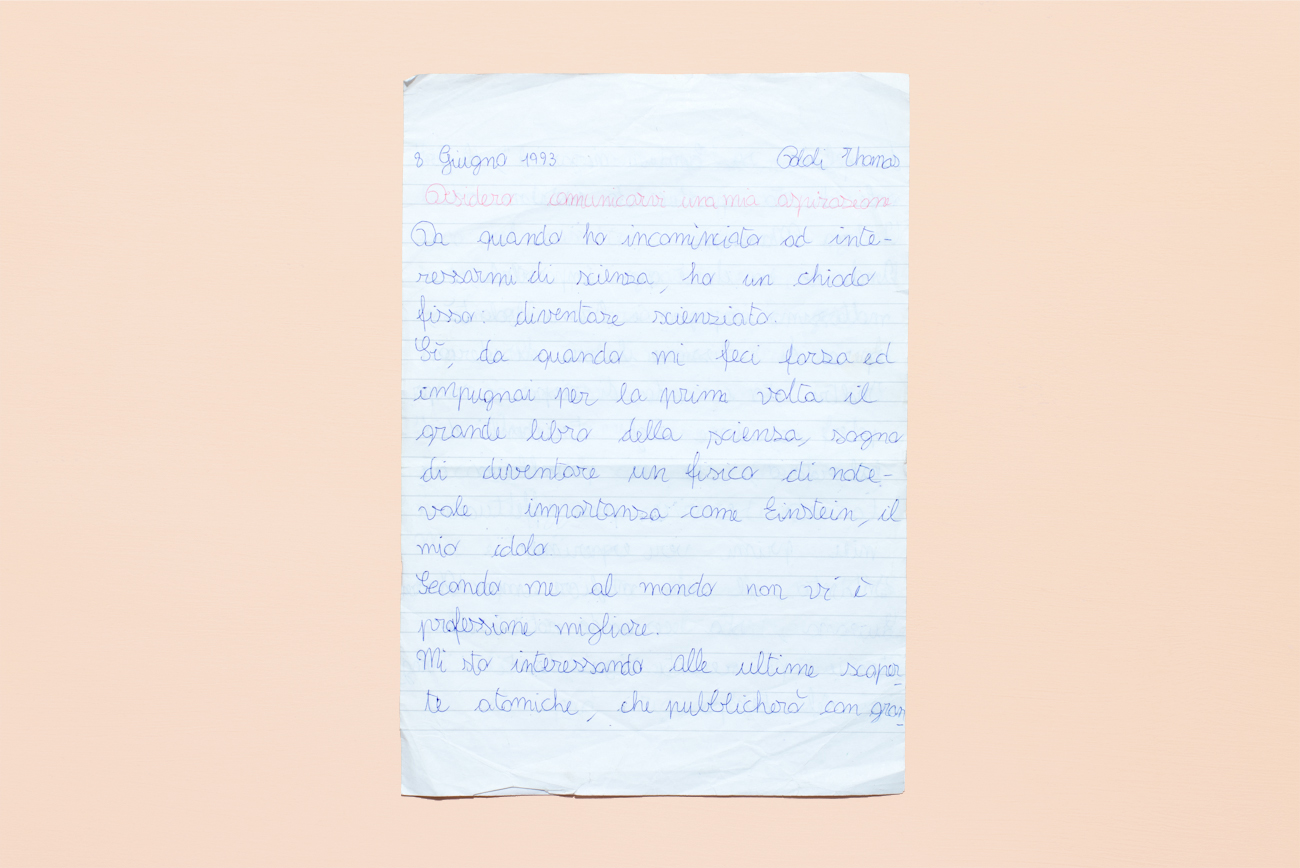 8 Giugno 1993 Oddi Thomas
Desidero comunicarvi una mia aspirazione
Da quando ho incominciato ad inte-
ressarmi di scienza, ho un chiodo
fisso: diventare scienziato.
Sì, da quando mi feci forza ed
impugnai per la prima volta il
grande libro della scienza, sogno
di diventare un fisico di note-
vole importanza come Einstein, il
mio idolo.
Secondo me al mondo non vi è
professione migliore.
Mi sto interessando alle ultime scoper-
te atomiche, che pubblicherò con gran